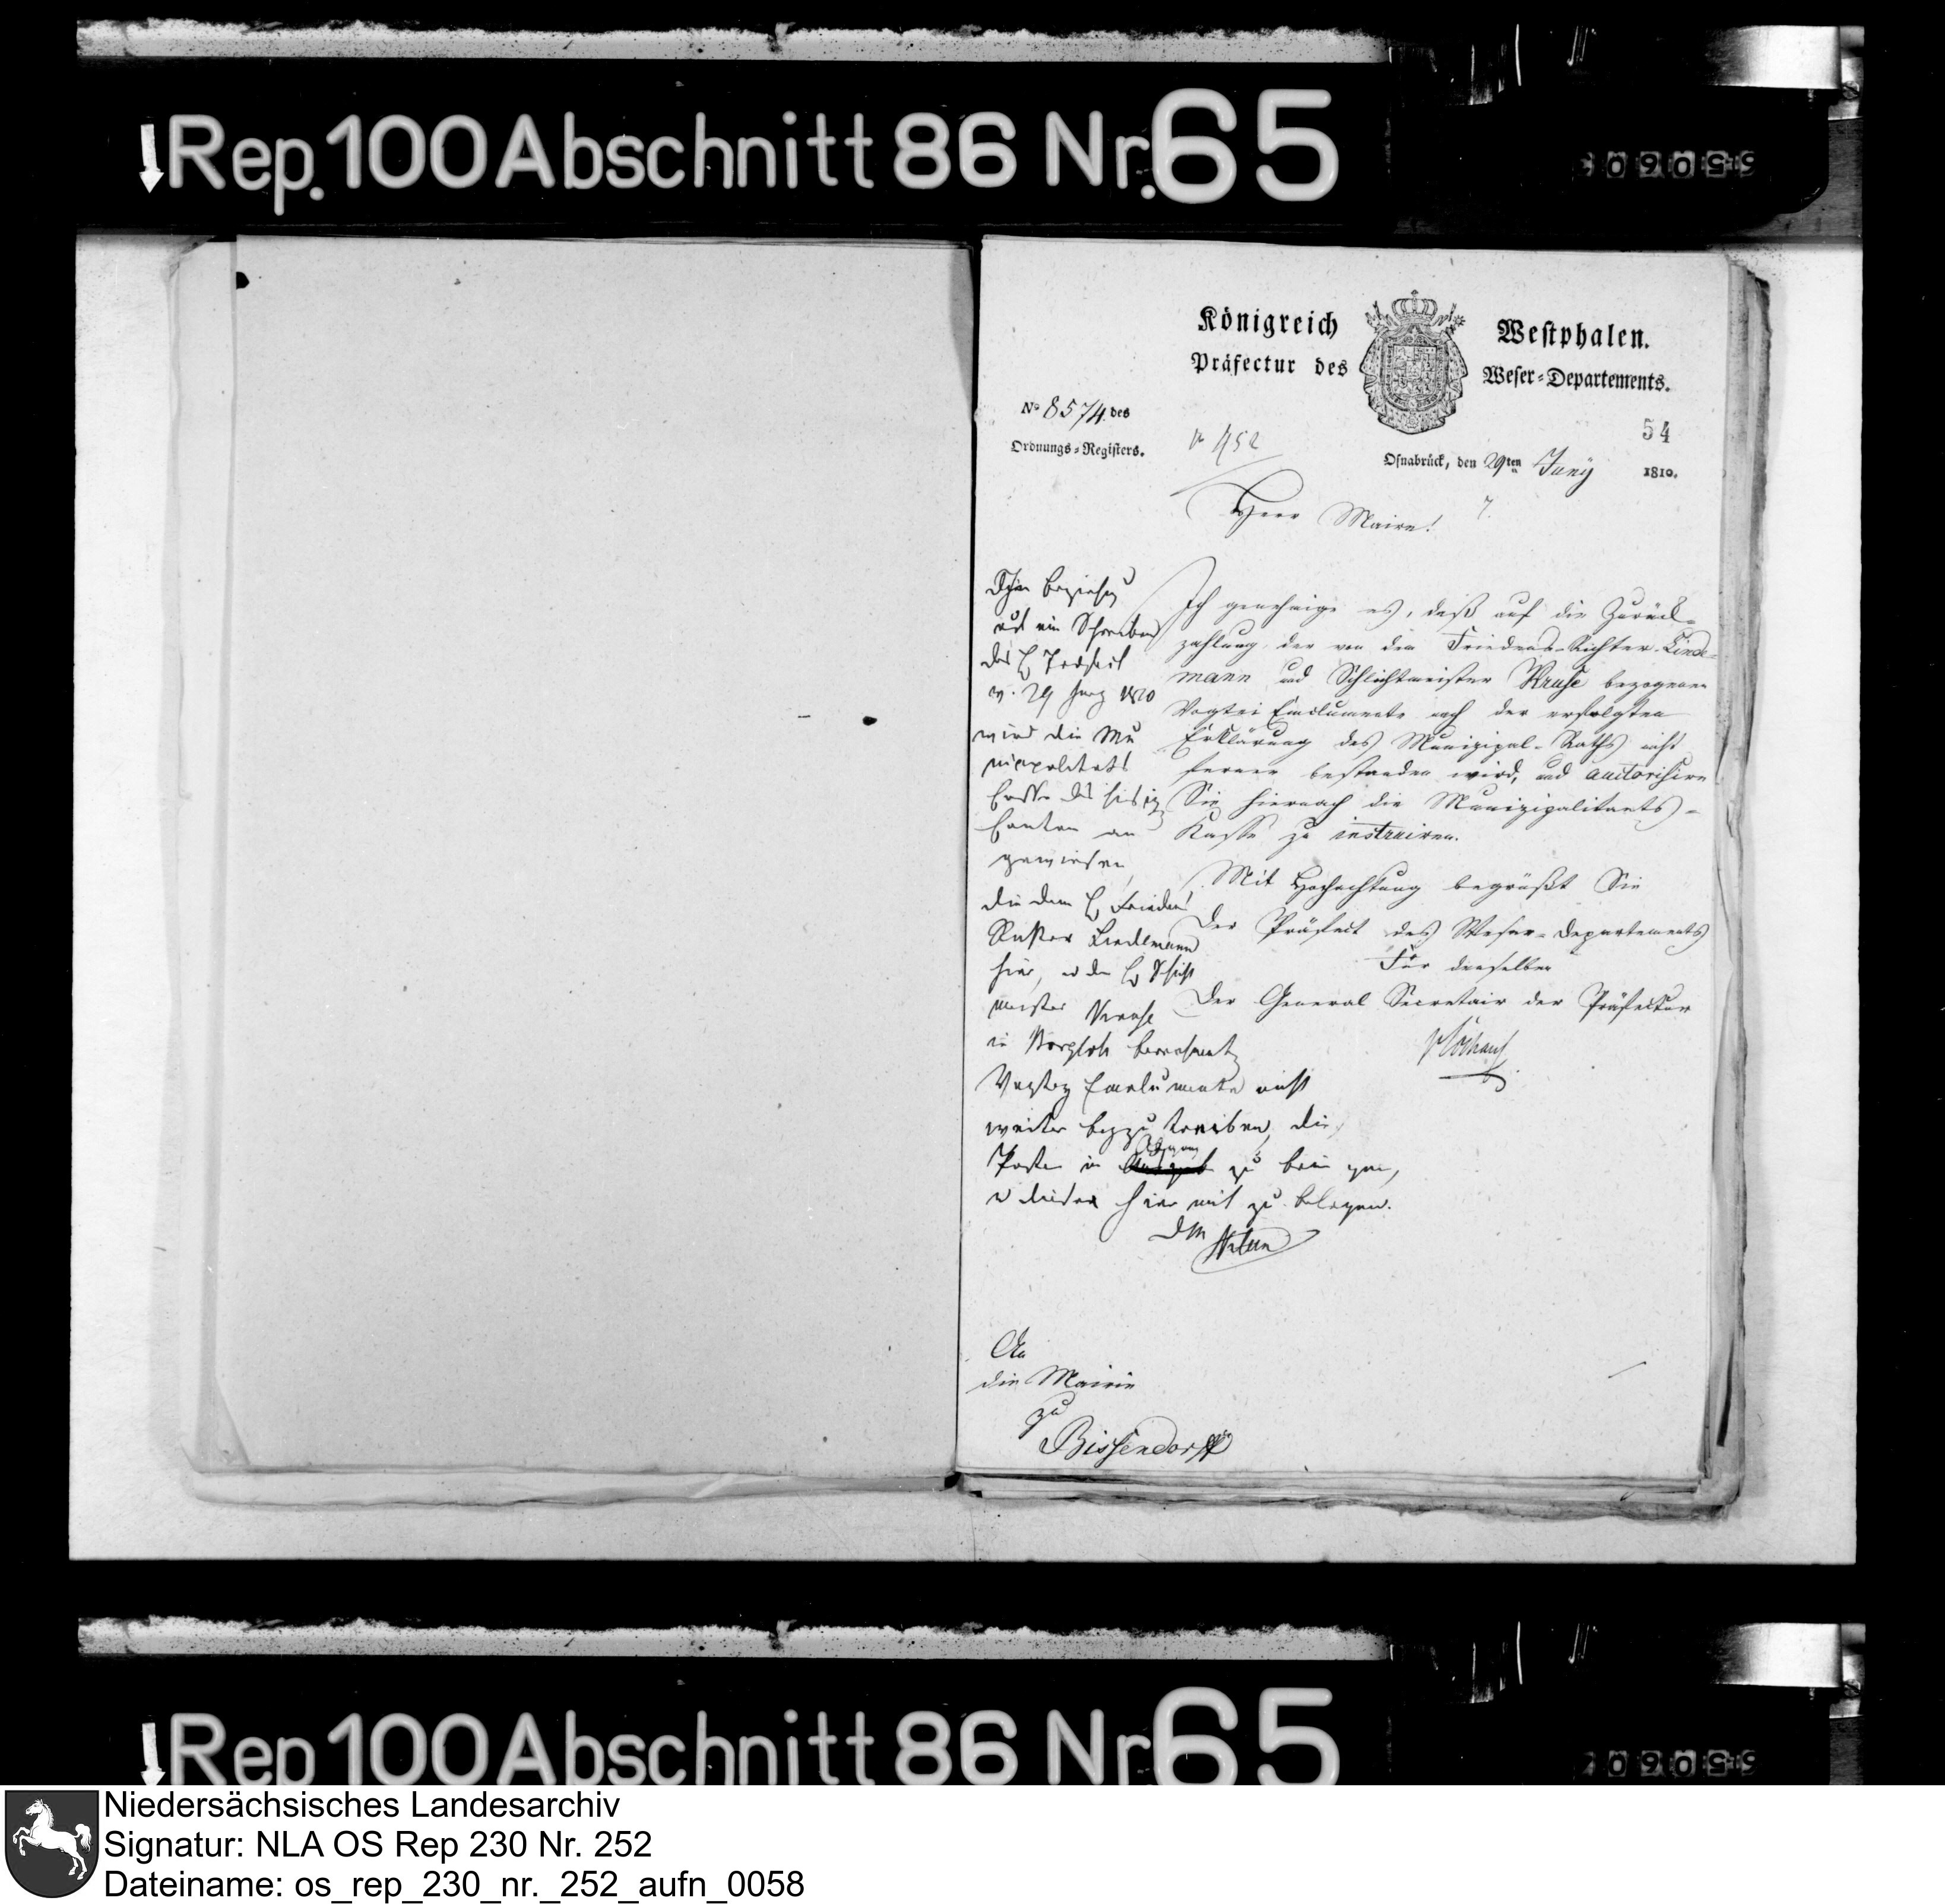 Rep. 100 Abschnitt 86 Nr. 65
Königreich Westphalen.
Präfectur des Weser-Departements.
No 8574. des
Ordnungs-Registers.
54
Osnabrück, den 29ten Juny 1810.
Herr Maire!
Ich genehmige es, daß auf die Zurück-
zahlung, der von dem Friedens-Richter Linde-
mann und Schichtmeister Kruse bezogenen
Vogtei Emolumente nach der erfolgten
Erklärung des Munizipal-Raths nicht
ferner bestanden wird, und autorisire
Sie hiernach die Munizipalitaets-
Kasse zu instruiren.
Mit Hochachtung begrüßt Sie
Der Präfect des Weser-Departements
Für denselben
Der General Secretair der Präfectur
Beziehung
auf ein Schreiben
des H Präfect
v. 29 Juny 1810
wird die Mu
nicipalitäts
Casse des hiesig
Canton an
gewiesen,
die dem H Friedens
Richter Lindemann
hier, u dem H Schicht
meister Kruse
in Borgloh berechnete
Vogtey Emolumente nicht
weiter beyzutreiben, die
Posten in Abgang zu bringen,
u diesen hiermit zu belegen.
An
die Mairie
zu
Bissendorff
Rep 100 Abschnitt 86 Nr 65
Niedersächsisches Landesarchiv
Signatur: NLA OS Rep 230 Nr. 252
Dateiname: os_rep_230_nr._252_aufn_0058